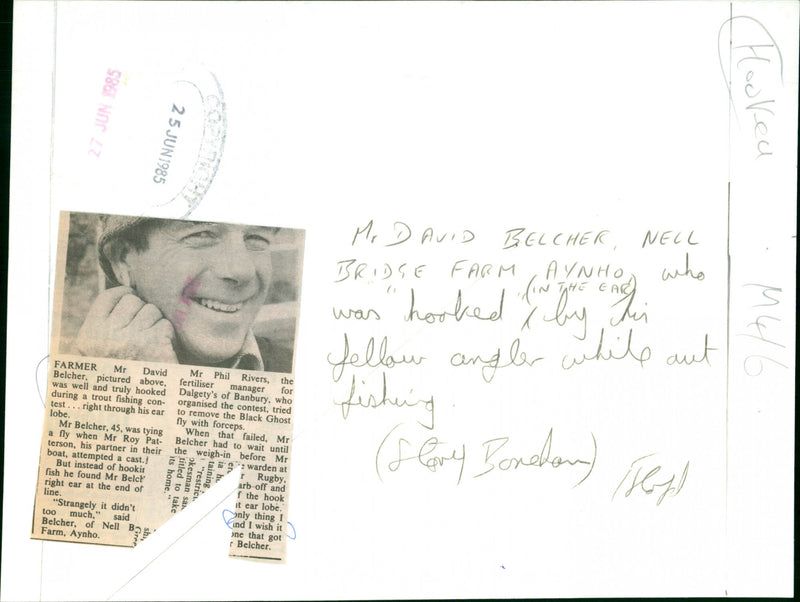 Hooked
27 JUN 1985
25 JUN 1985
COPYRIGHT
Mr DAVID BELCHER, NELL
BRIDGE FARM, AYNHO, who
(IN THE EAR)
was "hooked" by his
fellow angler while out
fishing.
M4/6
FARMER Mr David
Belcher, pictured above,
was well and truly hooked
during a trout fishing con-
test . . . right through his ear
lobe.
Mr Belcher, 45, was tying
a fly when Mr Roy Pat-
terson, his partner in their
boat, attempted a cast.
But instead of hooki
fish he found Mr Belc
right ear at the end of
line.
"Strangely it didn't
too much," said
Belcher, of Nell B
Farm, Aynho.
Mr Phil Rivers, the
fertiliser manager for
Dalgety's of Banbury, who
organised the contest, tried
to remove the Black Ghost
fly with forceps.
When that failed, Mr
Belcher had to wait until
the weigh-in before Mr
warden at
Rugby,
arb off and
f the hook
ear lobe.
only thing I
and I wish it
one that got
r Belcher.